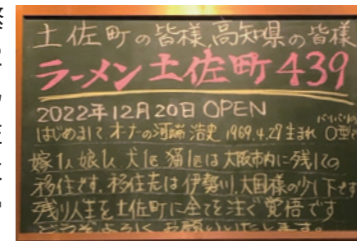 土佐町の皆様、高知県の皆様
ラーメン土佐町439
2022年12月20日 OPEN
はじめまして オーナの河端浩史 1969.4.29生まれ
嫁1人 娘1人 犬1匹 猫1匹は大阪市内に残しての
移住です。移住先は伊勢川、大国様の少し下です
残り人生を土佐町に全てを注ぐ覚悟です
どうぞよろしくお願いいたします。